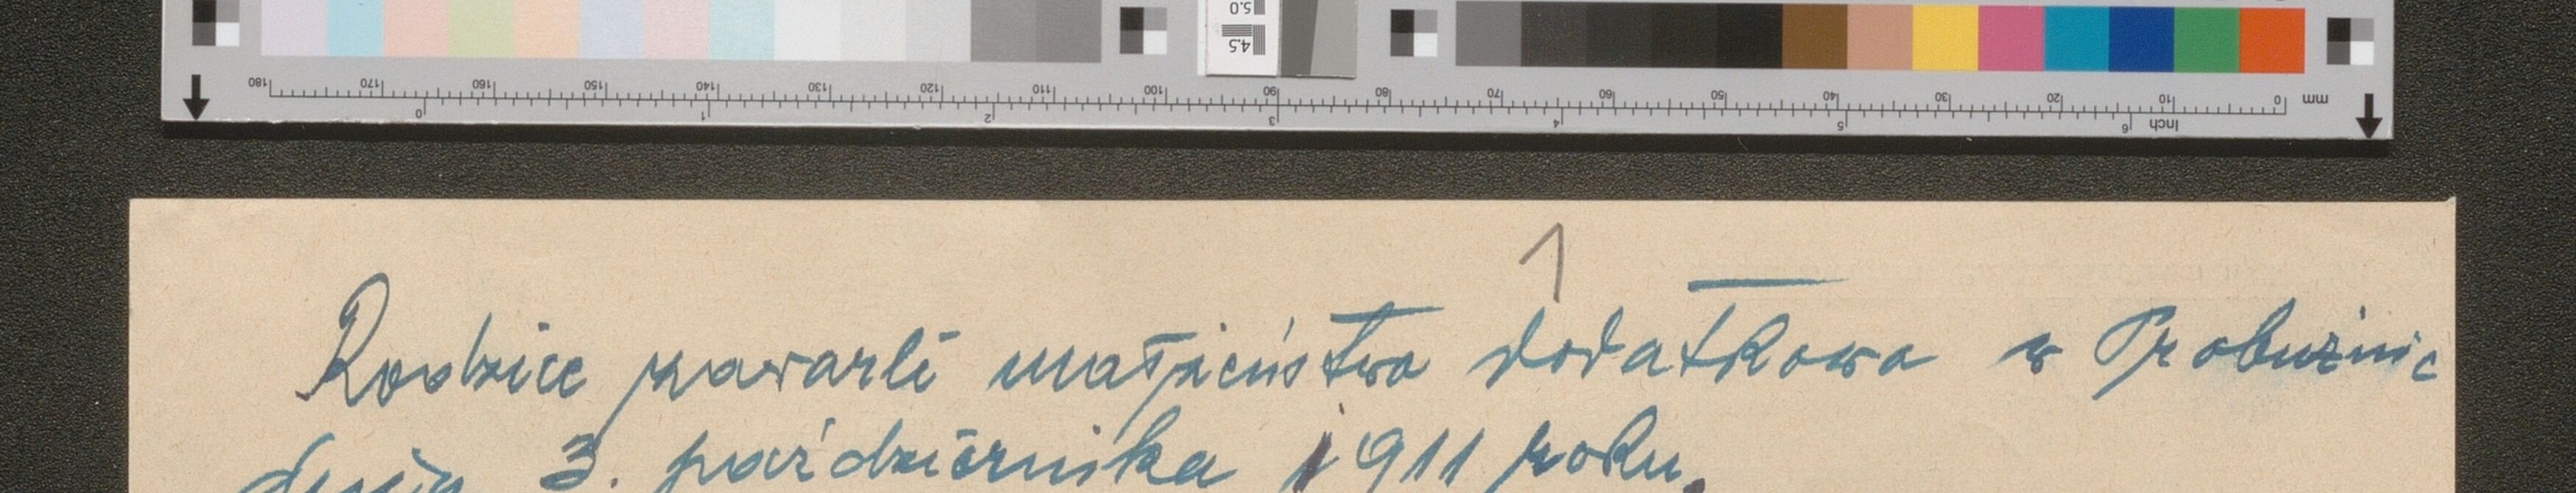 5.0
4.5
180 170 160 150 140 130 120 110 100 90 80 70 60 50 40 30 20 10 0 mm
0 1 2 3 4 5 6 Inch
1
Rodzice zawarli małżeństwo dodatkowo w Probużnie
dnia 3. października 1911 roku.